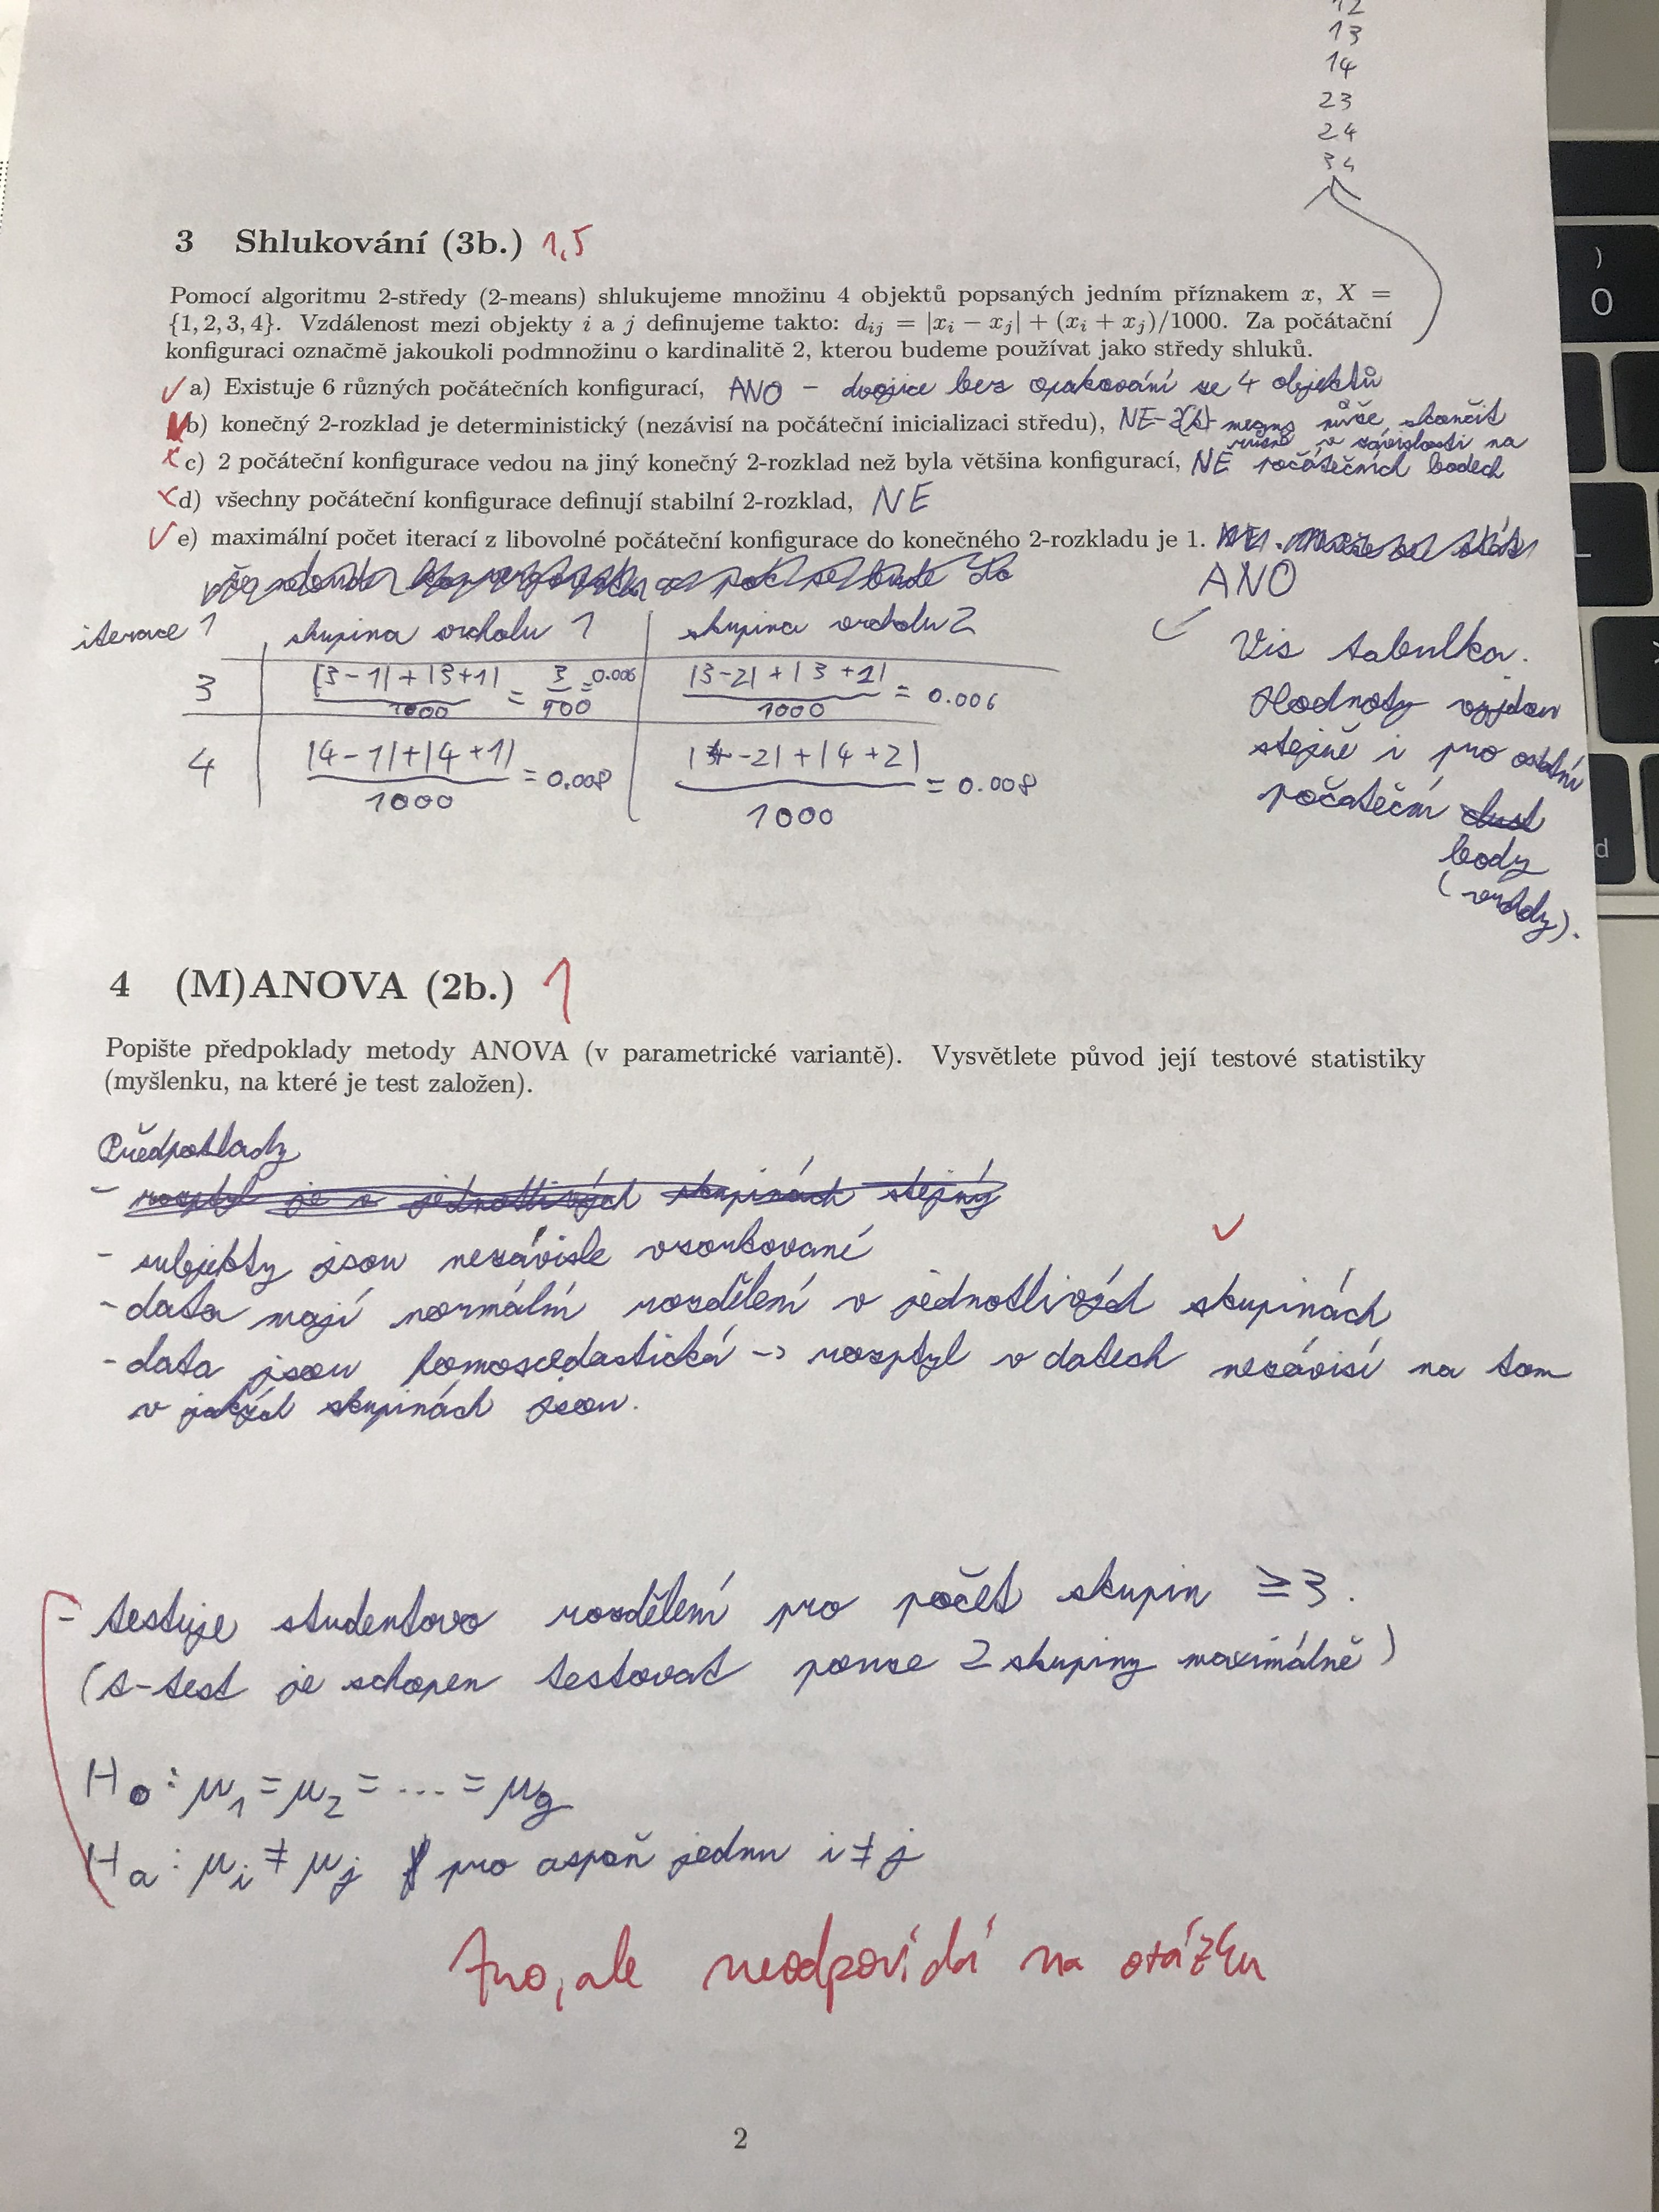 12
13
14
23
24
34
3 Shlukování (3b.) 1,5
Pomocí algoritmu 2-středy (2-means) shlukujeme množinu 4 objektů popsaných jedním příznakem x, X =
{1, 2, 3, 4}. Vzdálenost mezi objekty i a j definujeme takto: d_ij = |x_i − x_j| + (x_i + x_j)/1000. Za počátační
konfiguraci označmě jakoukoli podmnožinu o kardinalitě 2, kterou budeme používat jako středy shluků.
✓ a) Existuje 6 různých počátečních konfigurací, ANO - dvojice bez opakování ze 4 objektů
b) konečný 2-rozklad je deterministický (nezávisí na počáteční inicializaci středu), NE - means může skončit
různě v závislosti na
x c) 2 počáteční konfigurace vedou na jiný konečný 2-rozklad než byla většina konfigurací, NE počátečních bodech
x d) všechny počáteční konfigurace definují stabilní 2-rozklad, NE
✓ e) maximální počet iterací z libovolné počáteční konfigurace do konečného 2-rozkladu je 1.
ANO
iterace 1 skupina vrcholu 1 skupina vrcholu 2
3 |3-1|+|3+1| / 1000 = 3/500 = 0.006 |3-2|+|3+2| / 1000 = 0.006
4 |4-1|+|4+1| / 1000 = 0.008 |4-2|+|4+2| / 1000 = 0.008
Viz tabulka.
Hodnoty vyjdou
stejně i pro ostatní
počáteční
body
(vrcholy).
4 (M)ANOVA (2b.) 1
Popište předpoklady metody ANOVA (v parametrické variantě). Vysvětlete původ její testové statistiky
(myšlenku, na které je test založen).
Předpoklady
- rozptyl je v jednotlivých skupinách stejný
- subjekty jsou nezávisle vzorkované ✓
- data mají normální rozdělení v jednotlivých skupinách
- data jsou homoscedastická -> rozptyl v datech nezávisí na tom
v jakých skupinách jsou.
- testuje studentovo rozdělení pro počet skupin ≥ 3.
(t-test je schopen testovat pouze 2 skupiny maximálně)
H0: μ1 = μ2 = ... = μg
Ha: μi ≠ μj pro aspoň jednu i ≠ j
Ano, ale neodpovídá na otázku
2